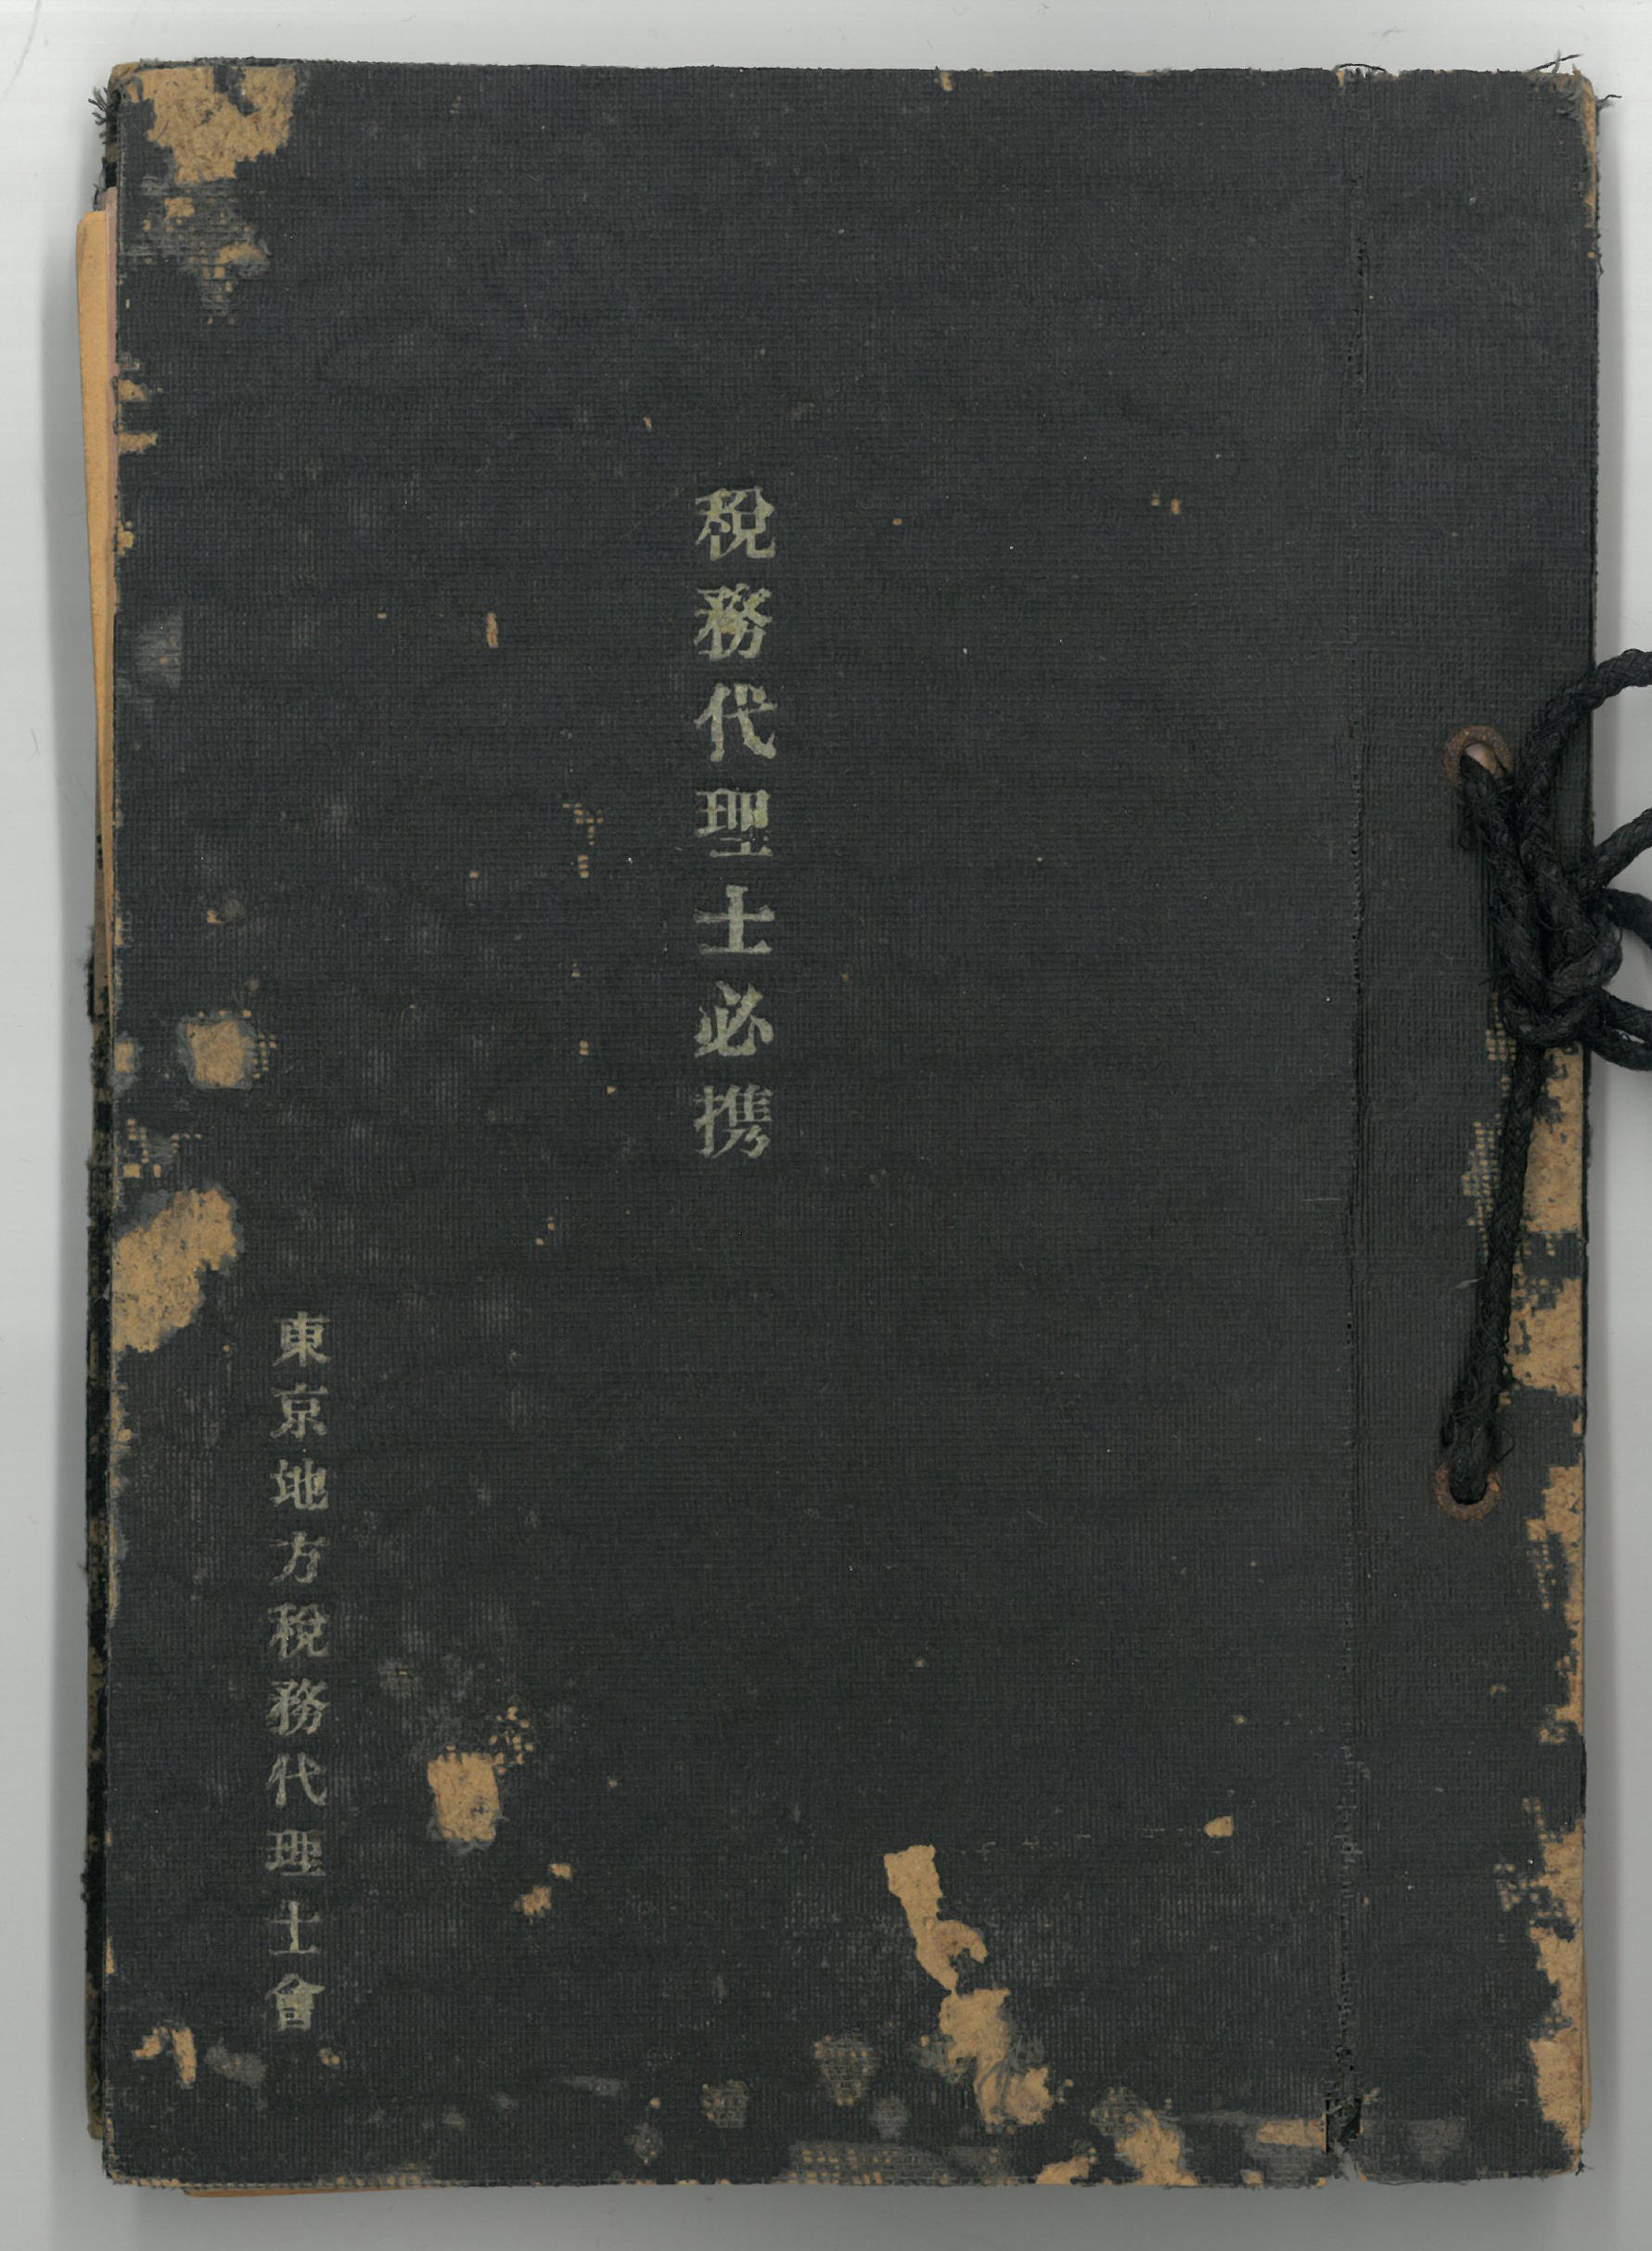 稅務代理士必携
東京地方稅務代理士會